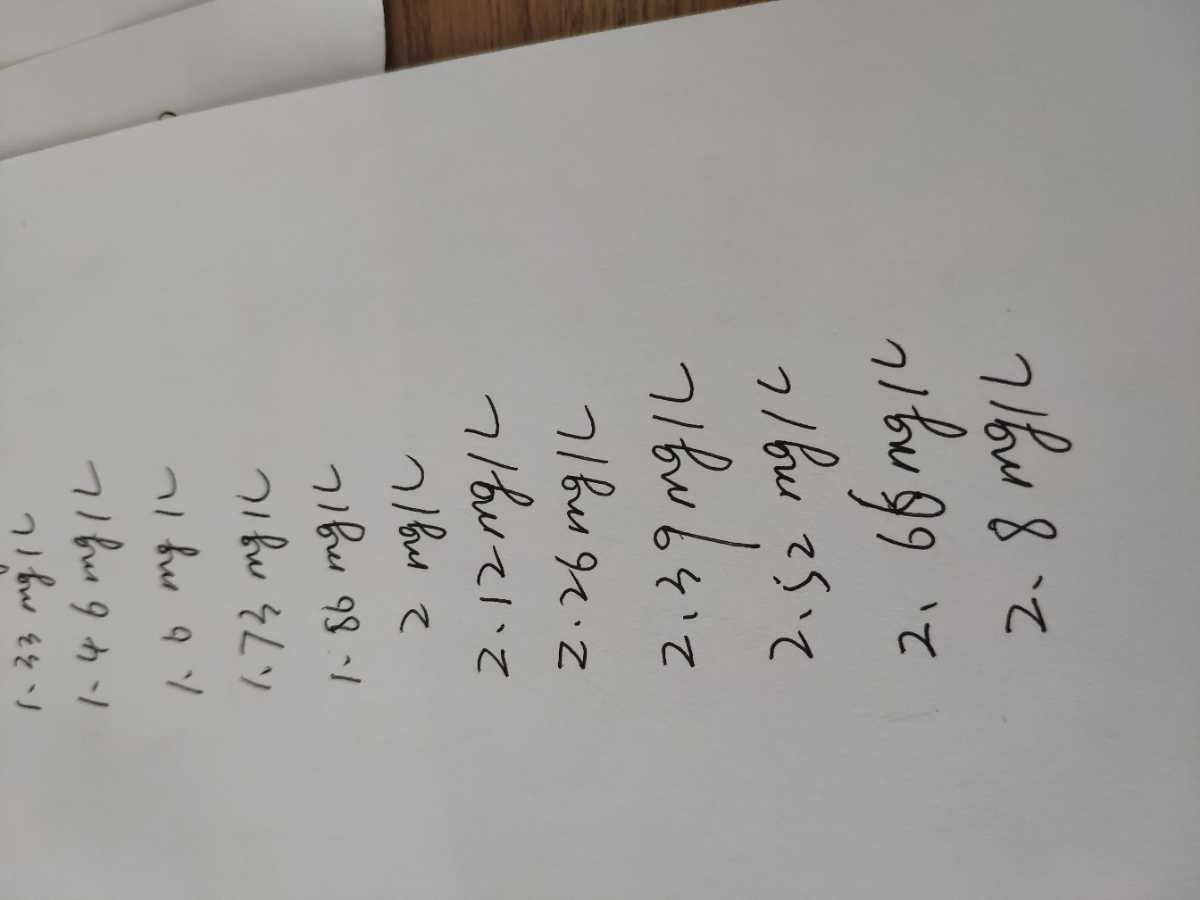 1.33 mg/L
1.46 mg/L
1.6 mg/L
1.73 mg/L
1.86 mg/L
2 mg/L
2.12 mg/L
2.26 mg/L
2.39 mg/L
2.52 mg/L
2.66 mg/L
2.8 mg/L